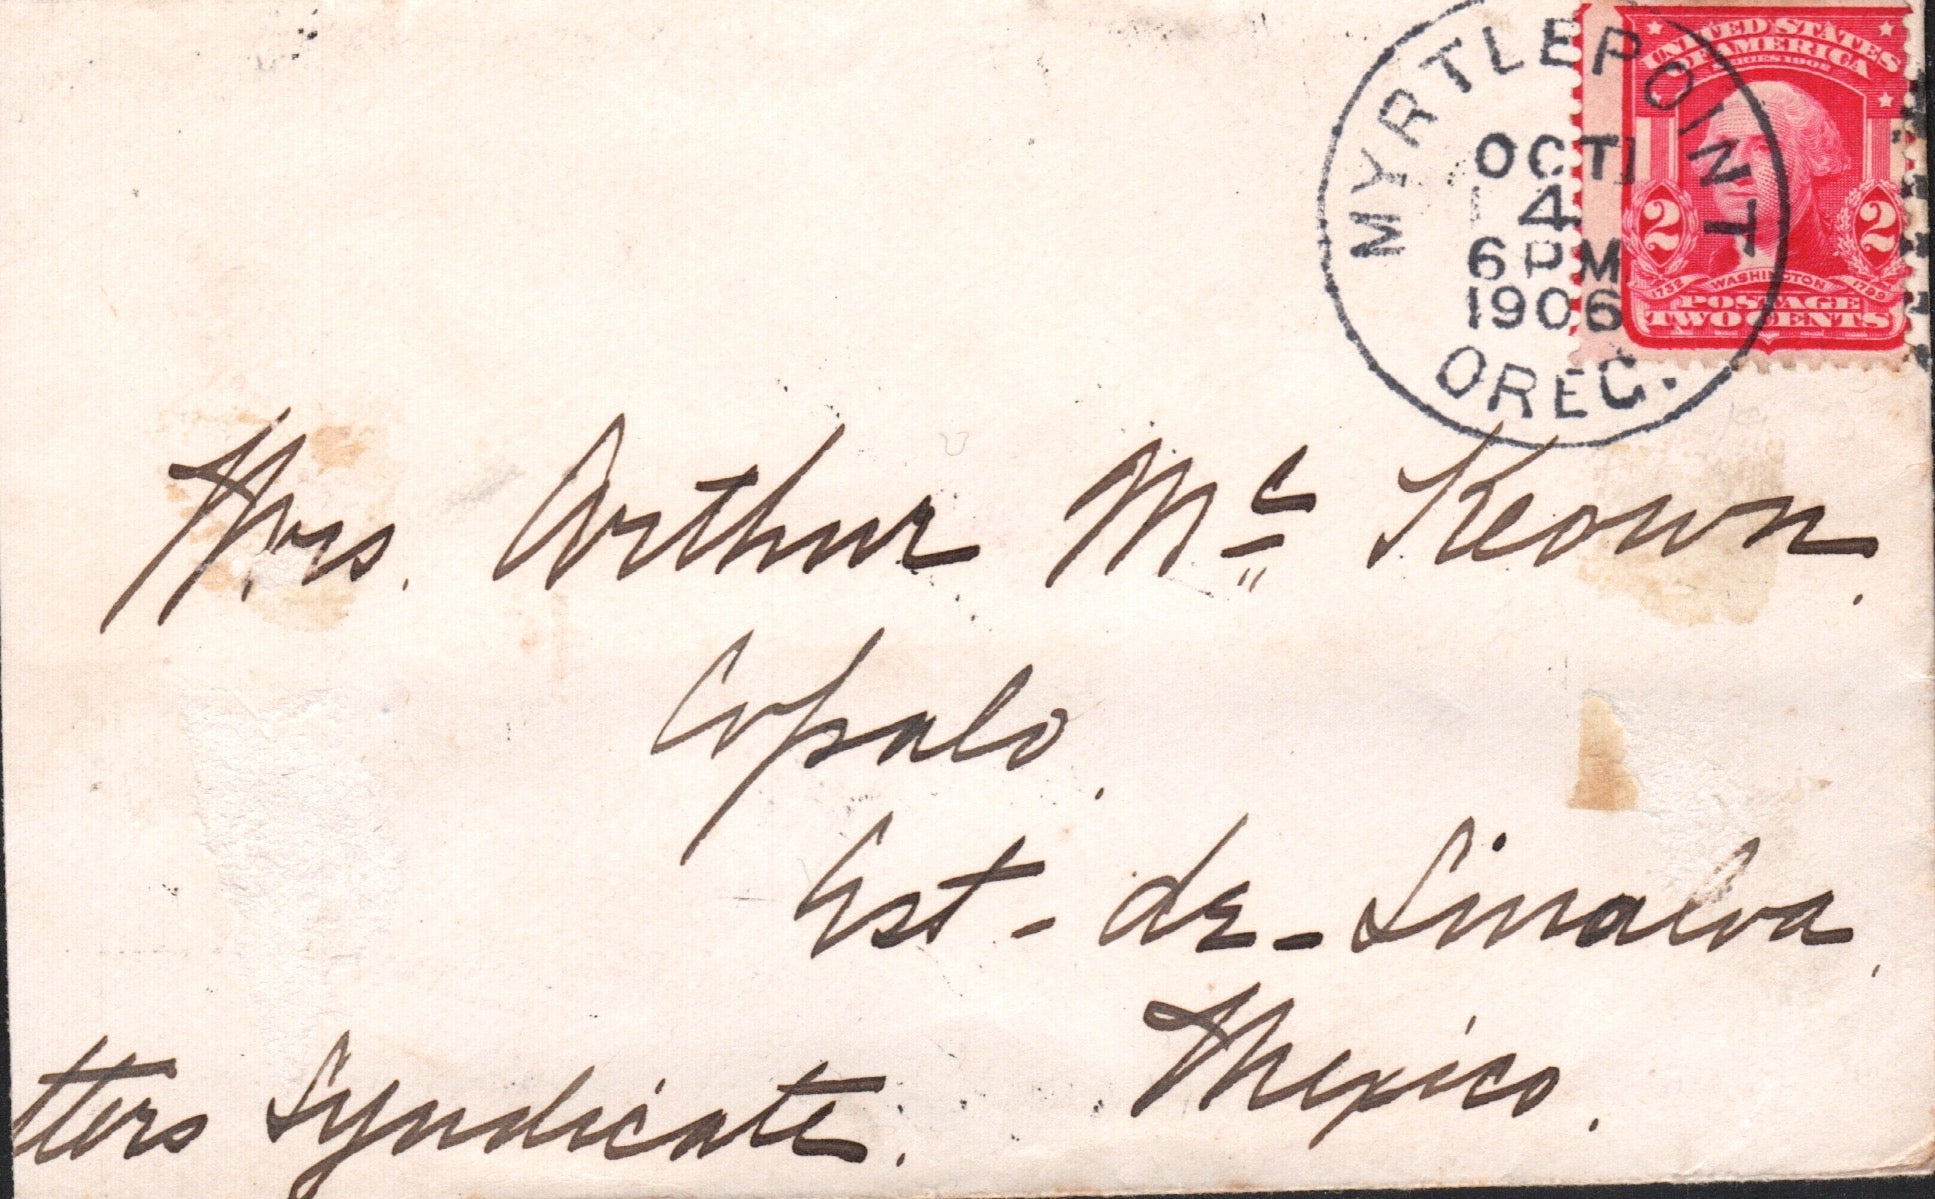 MYRTLEPOINT
OCT
4
6 PM
1906
OREG.
UNITED STATES
OF AMERICA
SERIES 1902
2 2
1732 WASHINGTON 1799
POSTAGE
TWO CENTS
Mrs. Arthur Mc Keown.
Copalo,
Est - de - Sinaloa,
Mexico.
tters Syndicate.